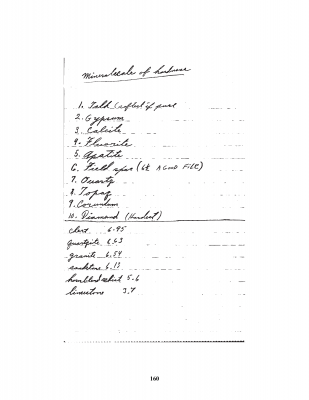 Mineral scale of hardness
1. Talk (softest if pure
2. Gypsum
3. Calcite
4. Fluorite
5. Apatite
6. Field spar (
7. Quartz
8. Topaz
9. Corundum
10. Diamond (Hardest)
chert 6.95
quartzite 6.63
granite 6.54
sandstone 6.13
hornblend schist 5.6
limestone 3.7
160